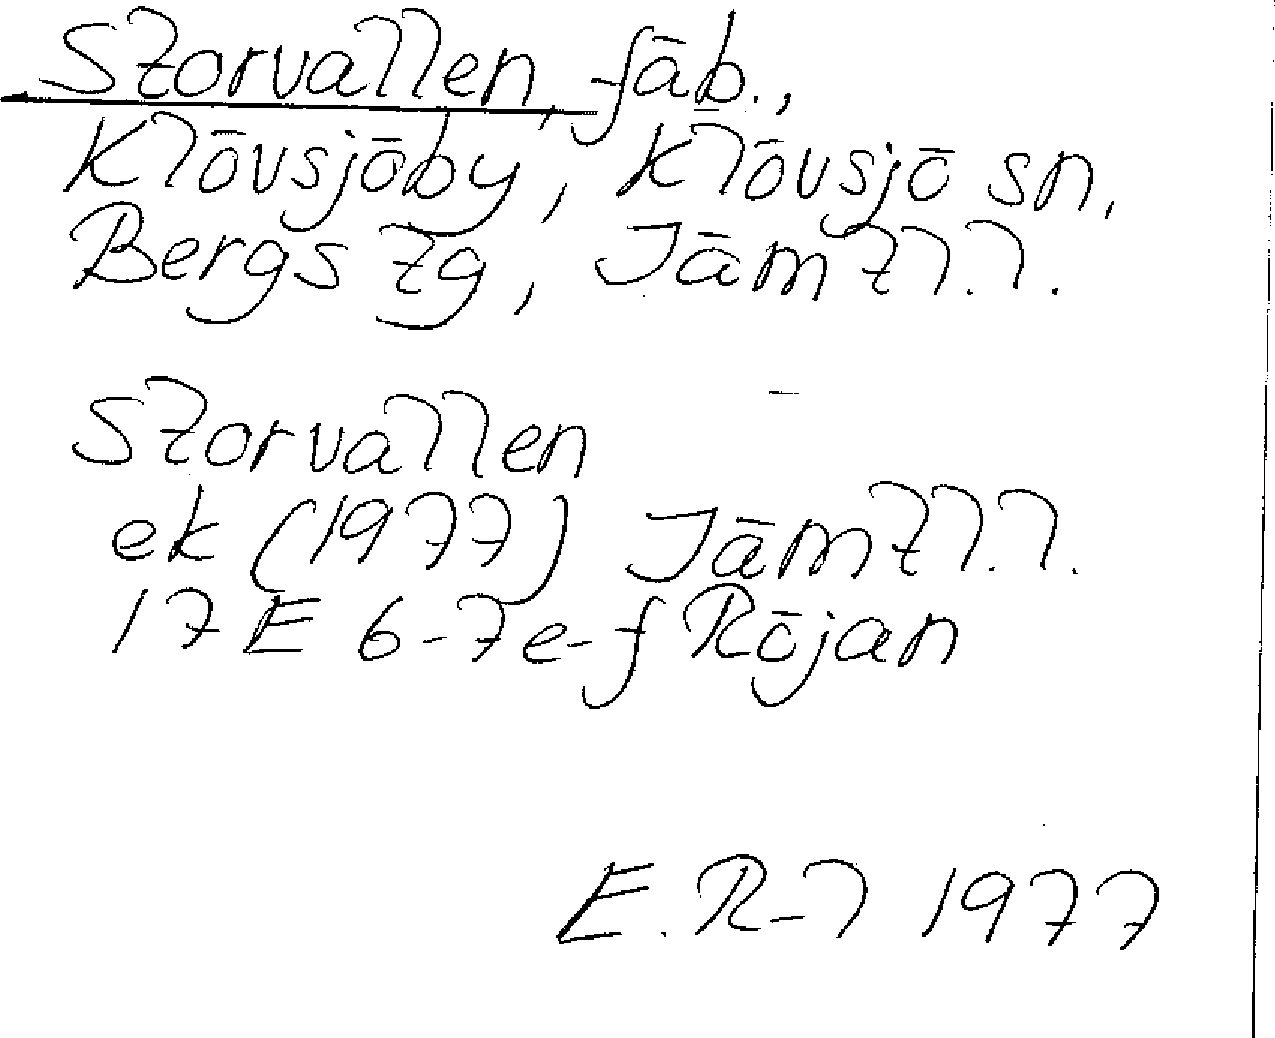 Storvallen, fäb.,
Klövsjöby, Klövsjö sn,
Bergs tg, Jämtl.l.
Storvallen
ek (1977) Jämtl.l.
17E 6-7e-f Röjan
E.R-l 1977